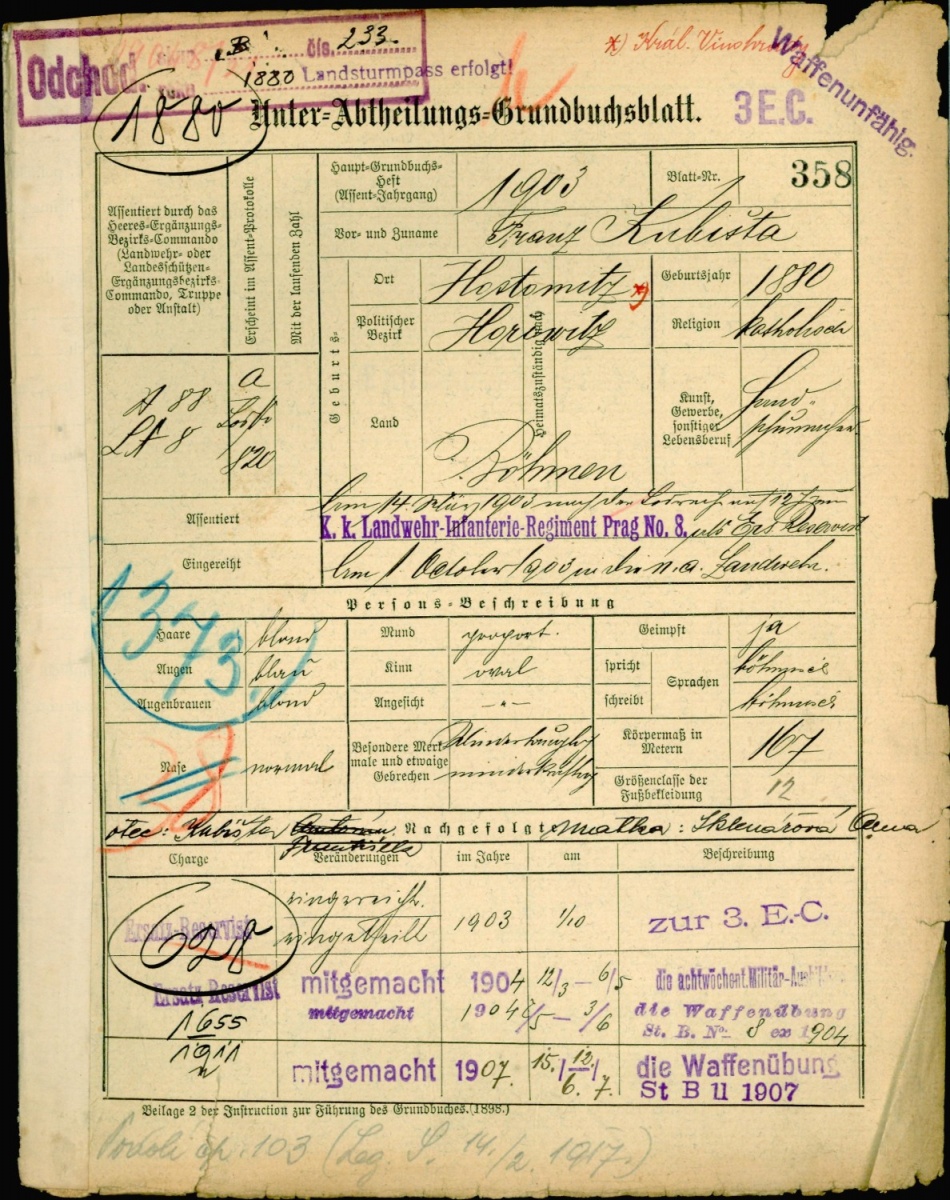 Odchod. „B“ čís. 233.
roku 1880 Landsturmpass erfolgt!
*) Král. Vinohrady
Waffenunfähig.
1880
Unter-Abtheilungs-Grundbuchsblatt.
3 E.C.
Assentiert durch das Heeres-Ergänzungs-Bezirks-Commando (Landwehr- oder Landesschützen-Ergänzungsbezirks-Commando, Truppe oder Anstalt)
Erscheint im Assent-Protokolle
Mit der laufenden Zahl
Haupt-Grundbuchs-Heft (Assent-Jahrgang) 1903
Blatt-Nr. 358
Vor- und Zuname Franz Kubišta
Geburts-
Heimatszuständig nach
Ort Hostomitz *)
Geburtsjahr 1880
Politischer Bezirk Horowitz
Religion katholisch
Land Böhmen
Kunst, Gewerbe, sonstiger Lebensberuf
A 88
LA 8
a
820
Assentiert Am 14. März 1903 nach der auf 12
K. k. Landwehr-Infanterie-Regiment Prag No. 8. als Ers Reservist
Eingereiht Am 1 October 1903 in die n. a. Landwehr.
Persons-Beschreibung
373.
Haare blond
Mund proport.
Geimpft ja
Augen blau
Kinn oval
spricht
Sprachen
böhmisch
Augenbrauen blond
Angesicht - " -
schreibt
böhmisch
Nase normal
Besondere Merkmale und etwaige Gebrechen Mindertauglich
Körpermaß in Metern 167
Größenclasse der Fußbekleidung 12
otec: Kubišta Antonín Nachgefolgte matka: Sklenářová Anna
Františka
Charge
Veränderungen
im Jahre
am
Beschreibung
Ersatz-Reservist
eingereicht.
eingetheilt
1903 1/10 zur 3. E.-C.
628
Ersatz Reservist
mitgemacht 1904 12/3 — 6/5 die achtwöchent. Militär-Ausbildung
mitgemacht 1904 7/5 — 3/6 die Waffenübung
St. B. No. 8 ex 1904
1655
1911
mitgemacht 1907. 15./6. 12./7. die Waffenübung
St B II 1907
Beilage 2 der Instruction zur Führung des Grundbuches. (1898.)
Podolí čp. 103 (Leg. S. 14./2. 1917.)